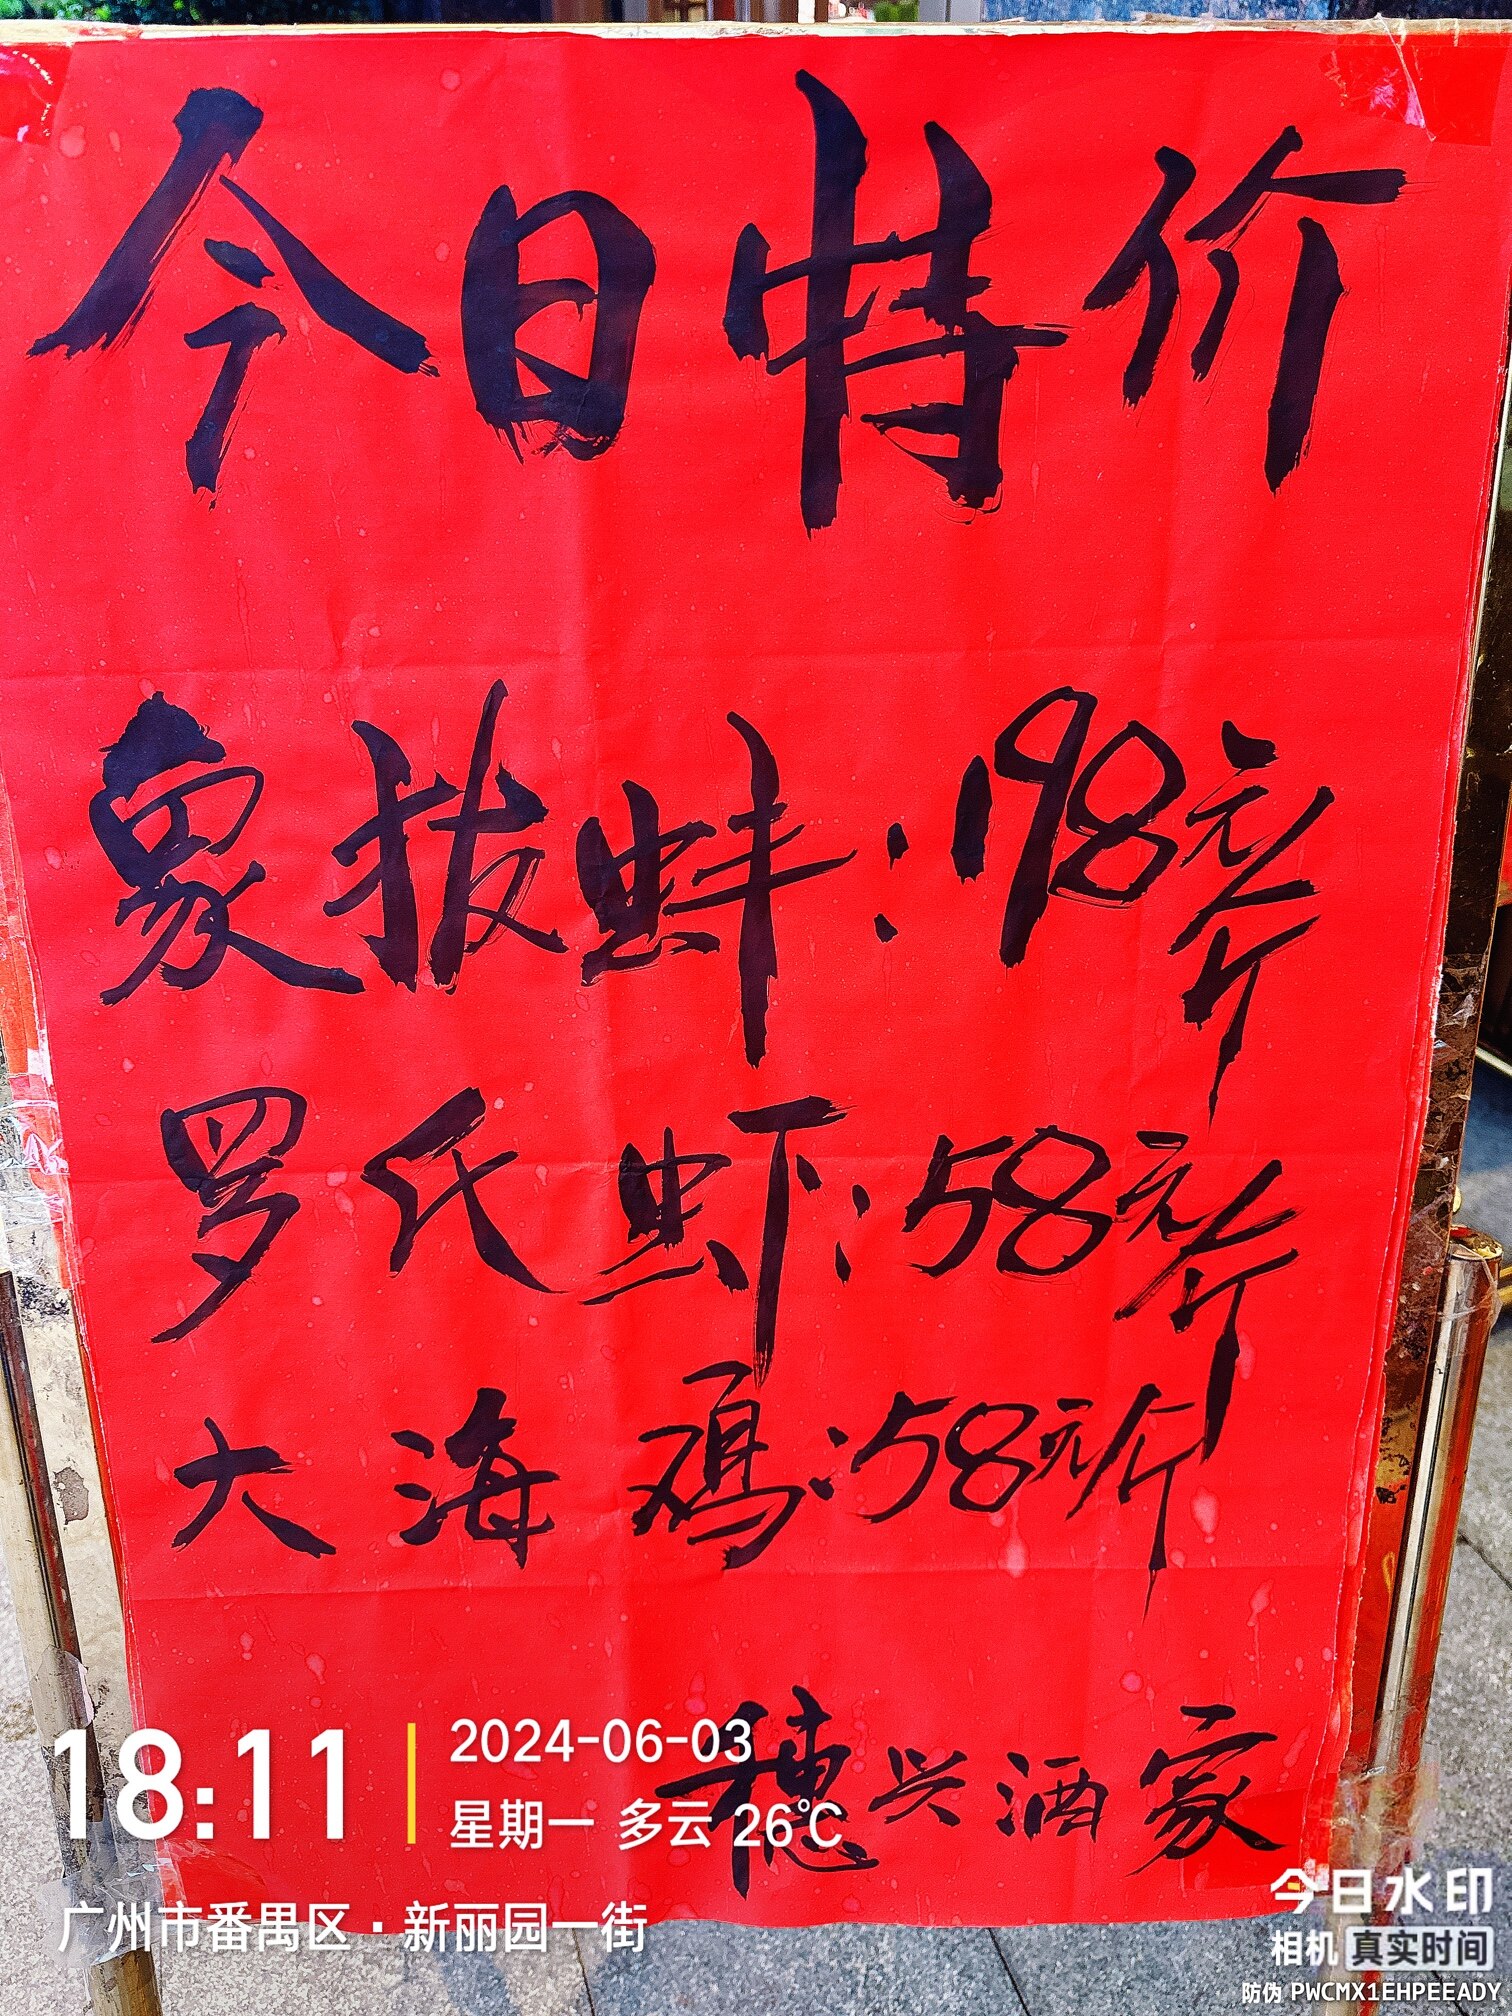 今日特价
象拔蚌:198元/斤
罗氏虾:58元/斤
大海鸡:58元/斤
穗兴酒家
18:11
2024-06-03
星期一 多云 26℃
广州市番禺区·新丽园一街
今日水印
相机 真实时间
防伪 PWCMX1EHPEEADY